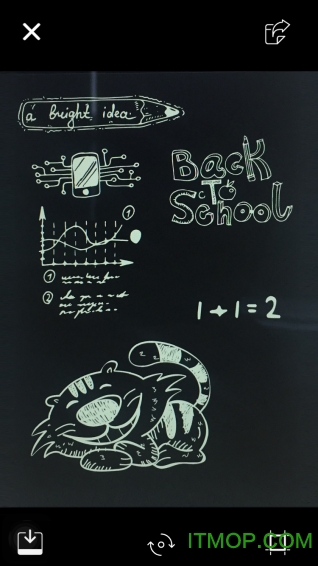 a bright idea
Back
To
School
1
1
2
1 + 1 = 2
ITMOP.COM